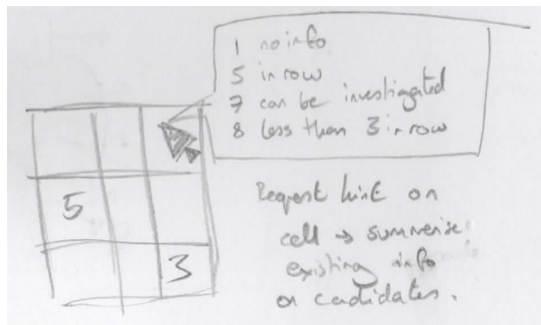 1 no info
5 in row
7 can be investigated
8 less than 3 in row
5
3
Request hint on
cell → summarise
existing info
on cadidates.